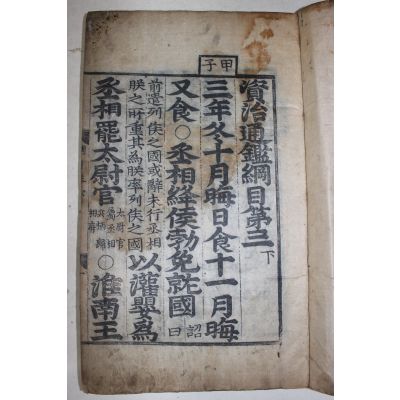 資治通鑑綱目第三下
甲子
三年冬十月晦日食十一月晦
又食○丞相絳侯勃免就國詔曰
前遣列侯之國或辭未行丞相
朕之所重其為朕率列侯之國
以灌嬰為
丞相罷太尉官
太尉官
屬丞相
○淮南王